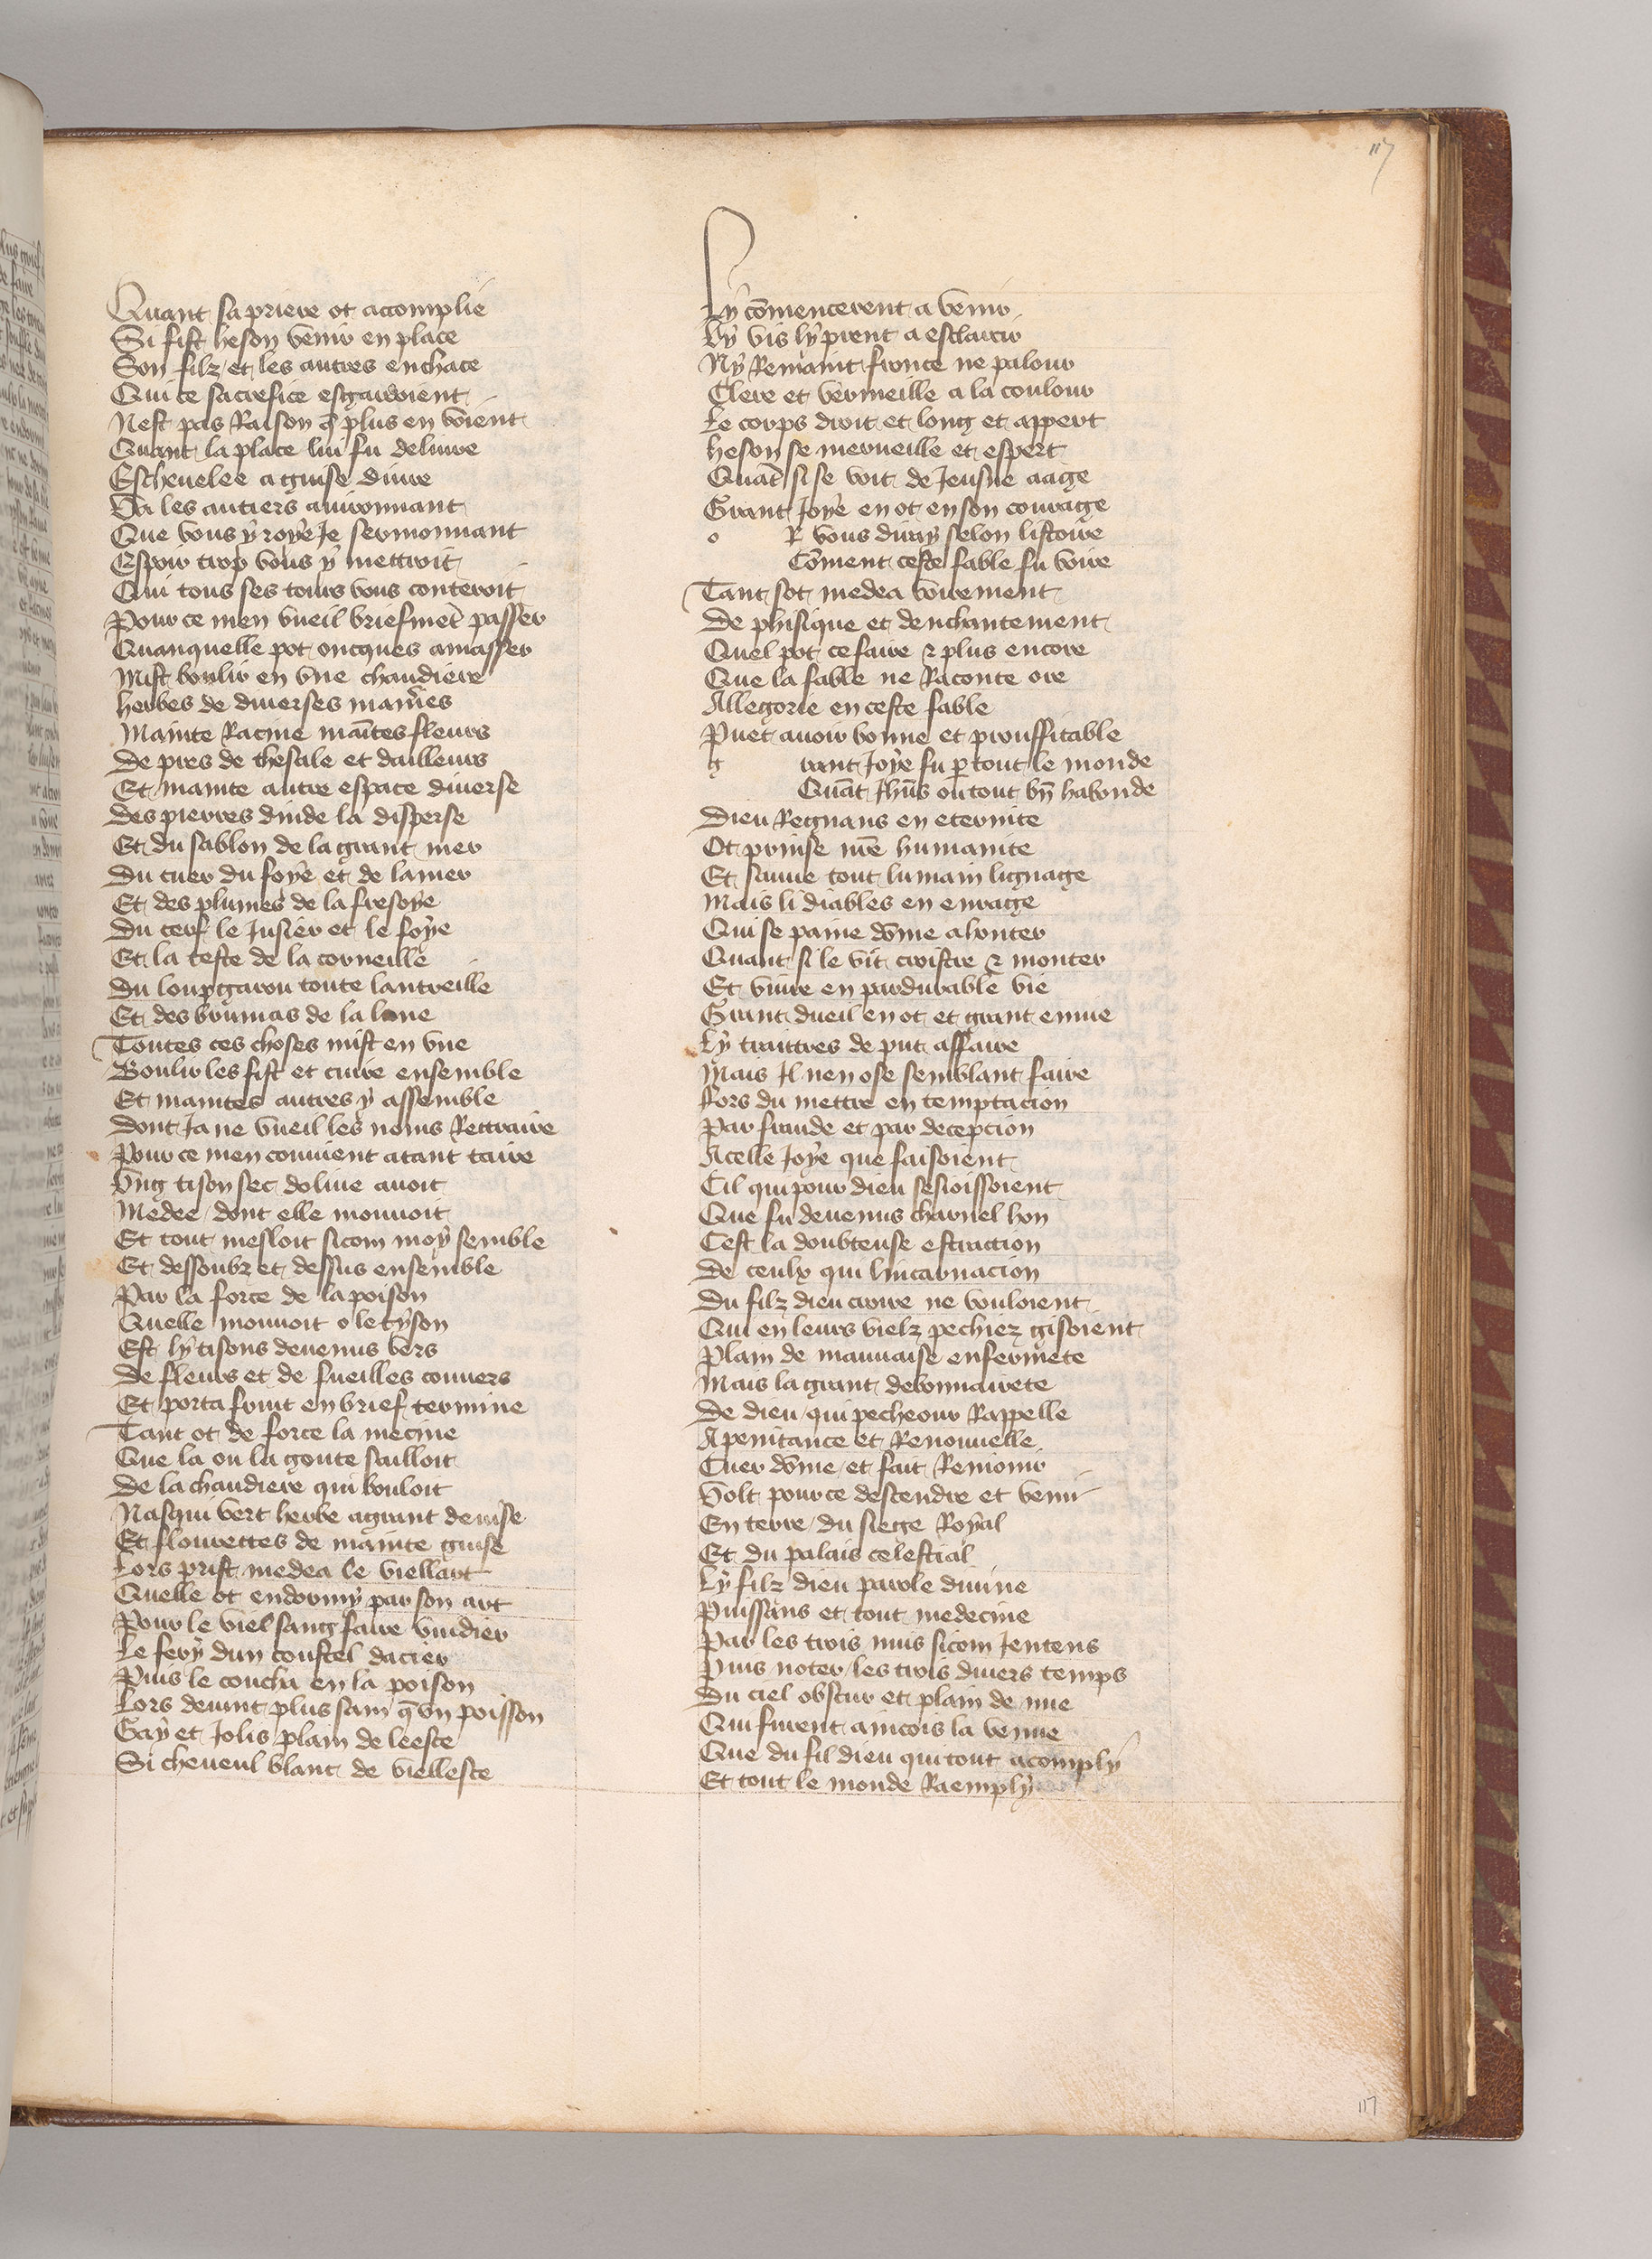 117
Quant sa priere ot accomplie
Si fist heson venir en place
Son filz et les autres enchace
Qui ce sacrefice esgardoient
Nest pas Raison q̃ plus en voient
Quant la place lui fu deliure
Escheuelee a guise diure
Va les autiers auironnant
Que vous y roye Je sermonnant
Espoir trop vous y mettroit
Qui tous ses tours vous conteroit
Pour ce men vueil briefmẽt passer
Quanquelle pot oncques amasser
Mist boulir en vne chaudiere
herbes de diuerses manieres
Mainte Racine maĩtes fleurs
De pres de thesale et dailleurs
Et mainte autre espace diuerse
Des pierres dinde la disperse
Et du sablon de la grant mer
Du cuer du foye et de lamer
Et des plumes de la fresoye
Du cerf le Jusier et le foye
Et la teste de la corneille
Du loupgarou toute lantreille
Et des bruimas de la lune
Toutes ces choses mist en vne
Boulir les fist et cuire ensemble
Et maintes autres y assemble
Dont Ja ne vueil les noms Rettraire
Pour ce men conuient atant taire
Vng tison sec doliue auoit
Medee dont elle mouuoit
Et tout mesloit sicom moy semble
Et dessoubz et dessus ensemble
Par la force de la poison
Quelle mouuoit o le tyson
Est ly tisons deuenus vers
De fleurs et de fueilles couuers
Et porta fruit en brief termine
Tant ot de force la mecine
Que la ou la goute sailloit
De la chaudiere qui bouloit
Nasqui vert herbe a grant deuise
Et flourettes de mainte guise
Lors prist medea le viellart
Quelle ot endormy par son art
Pour le viel sang faire vuidier
Le fery dun coustel dacier
Puis le coucha en la poison
Lors deuint plus sain q̃ vn poisson
Gay et Jolis plain de leesce
Si cheueul blanc de viellesce
Ly cõmencerent a venir
Ly vis ly prent a esclarcir
Ny Remaint fronce ne palour
Clere et vermeille a la coulour
Le corps droit et long et appert
heson se merueille et espert
Quãt si se voit de Jeusne aage
Grant Joye en ot en son courage
o R vous diray selon listoire
Cõment ceste fable fu voire
Tant sot medea voirement
De phisique et denchantement
Quel pot ce faire & plus encore
Que la fable ne Raconte ore
Allegorie en ceste fable
Puet auoir bonne et prouffitable
g rant Joye fu p tout le monde
Quãt Jhũs ou tout bñ habonde
Dieu Regnans en eternite
Ot prinse nr̃e humanite
Et sauue tout lumain lignage
Mais li diables en enrage
Qui se paine dõme ahonter
Quant si le vit croistre & monter
Et viure en pardurable vie
Grant dueil en ot et grant enuie
Ly traittres de put affaire
Mais Il nen ose semblant faire
Fors du mettre en temptacion
Par fraude et par decepcion
Acelle Joye que faisoient
Cil qui pour dieu sesioissoient
Que fu deuenus charnel hon
Cest la doubteuse estraction
De ceulx qui lincarnacion
Du filz dieu croire ne vouloient
Qui en leurs vielz pechiez gisoient
Plain de mauuaise enfermete
Mais la grant debonnairete
De dieu qui pecheour Rappelle
Apenitance et Renouuelle
Cuer dõme et fait Reniouir
Volt pour ce descendre et venir
En terre du siege Royal
Et du palais celestial
Ly filz dieu parole diuine
Puissans et tout medecine
Par les trois nuis sicom Jentens
Puis noter les trois diuers temps
Du ciel obscur et plain de nue
Qui furent aincois la venue
Que du fil dieu qui tout acomply
Et tout le monde Raemply
117